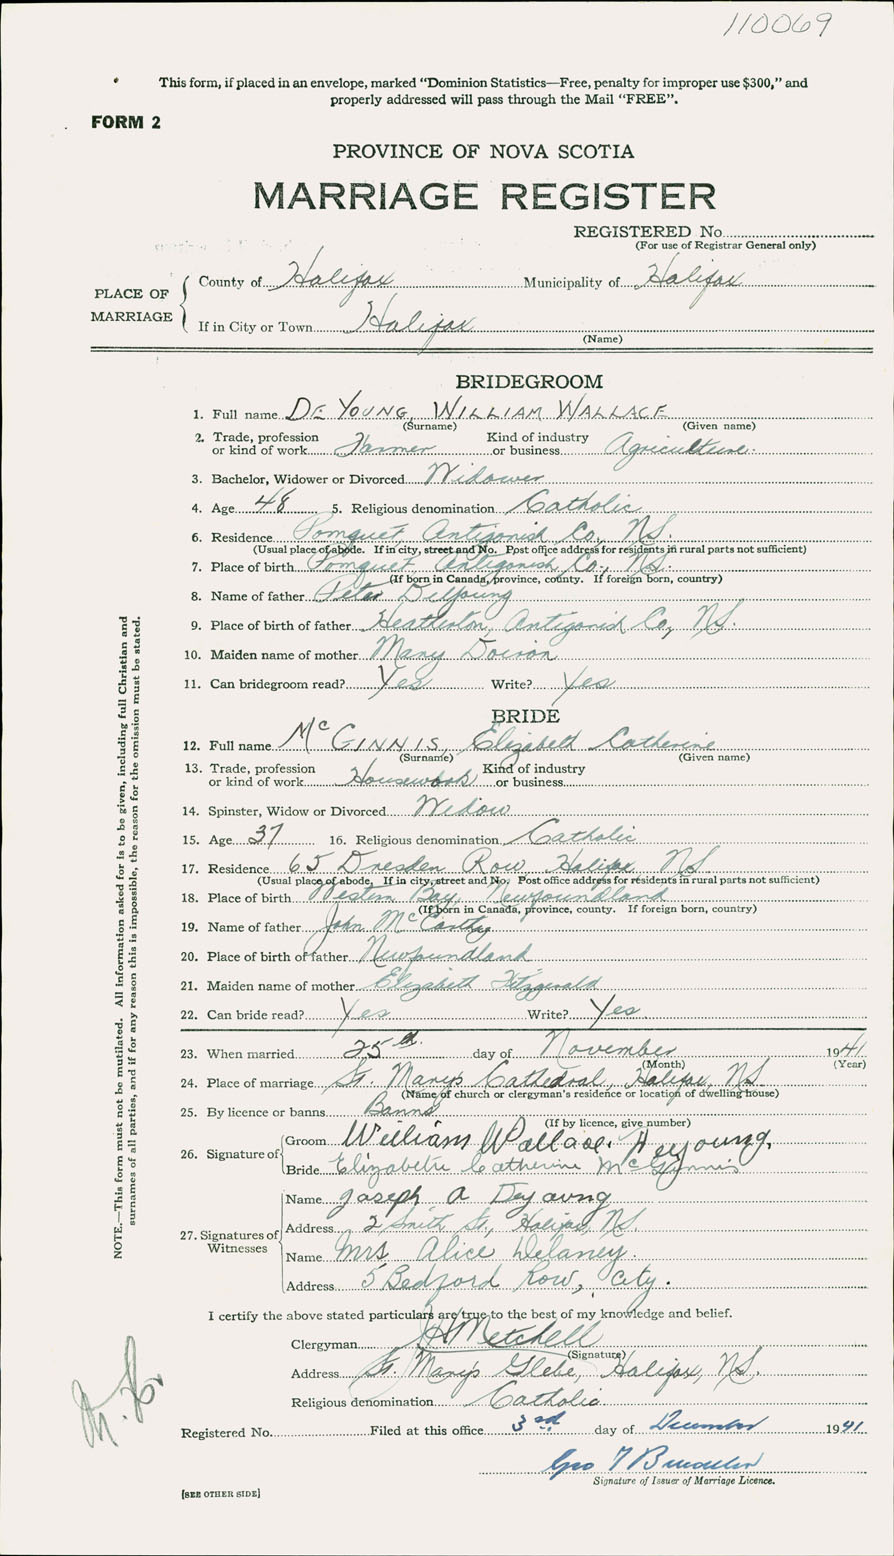 110069
This form, if placed in an envelope, marked “Dominion Statistics—Free, penalty for improper use $300,” and
properly addressed will pass through the Mail “FREE”.
FORM 2
PROVINCE OF NOVA SCOTIA
MARRIAGE REGISTER
REGISTERED No.
(For use of Registrar General only)
PLACE OF MARRIAGE
County of Halifax Municipality of Halifax
If in City or Town Halifax
(Name)
BRIDEGROOM
1. Full name DE YOUNG, WILLIAM WALLACE
(Surname) (Given name)
2. Trade, profession or kind of work Farmer Kind of industry or business Agriculture.
3. Bachelor, Widower or Divorced Widower
4. Age 48 5. Religious denomination Catholic
6. Residence Pomquet Antigonish Co., N.S.
(Usual place of abode. If in city, street and No. Post office address for residents in rural parts not sufficient)
7. Place of birth Pomquet Antigonish Co., N.S.
(If born in Canada, province, county. If foreign born, country)
8. Name of father Peter DeYoung
9. Place of birth of father Heatherton, Antigonish Co, N.S.
10. Maiden name of mother Mary Doiron
11. Can bridegroom read? Yes Write? Yes
BRIDE
12. Full name McGINNIS, Elizabeth Catherine
(Surname) (Given name)
13. Trade, profession or kind of work Housework Kind of industry or business
14. Spinster, Widow or Divorced Widow
15. Age 37 16. Religious denomination Catholic
17. Residence 65 Dresden Row Halifax, N.S.
(Usual place of abode. If in city, street and No. Post office address for residents in rural parts not sufficient)
18. Place of birth Western Bay, Newfoundland
(If born in Canada, province, county. If foreign born, country)
19. Name of father John McCarthy
20. Place of birth of father Newfoundland
21. Maiden name of mother Elizabeth Fitzgerald
22. Can bride read? Yes Write? Yes
23. When married 25th. day of November 1941
(Month) (Year)
24. Place of marriage St. Mary's Cathedral, Halifax, N.S.
(Name of church or clergyman's residence or location of dwelling house)
25. By licence or banns Banns
(If by licence, give number)
26. Signature of
Groom William Wallace Deyoung,
Bride Elizabeth Catherine McGinnis
27. Signatures of Witnesses
Name Joseph A Deyoung
Address 2 Smith St, Halifax, N.S.
Name Mrs Alice Delaney.
Address 5 Bedford Row, City.
I certify the above stated particulars are true to the best of my knowledge and belief.
Clergyman Metchell
(Signature)
Address St. Mary's Glebe, Halifax, N.S.
Religious denomination Catholic
Registered No. Filed at this office 3rd day of December 1941
Geo
Signature of Issuer of Marriage Licence.
[SEE OTHER SIDE]
NOTE.—This form must not be mutilated. All information asked for is to be given, including full Christian and
surnames of all parties, and if for any reason this is impossible, the reason for the omission must be stated.